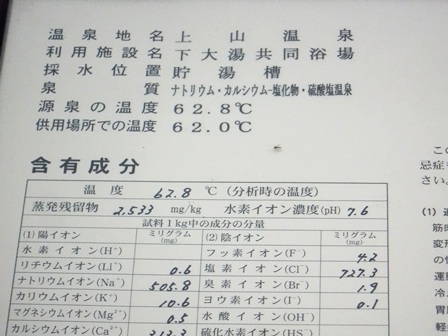 温泉地名 上山温泉
利用施設名 下大湯共同浴場
採水位置 貯湯槽
泉質 ナトリウム・カルシウム-塩化物・硫酸塩温泉
源泉の温度 62.8℃
供用場所での温度 62.0℃
含有成分
温度 62.8 ℃ (分析時の温度)
蒸発残留物 2.533 mg/kg 水素イオン濃度(pH) 7.6
試料1kg中の成分の分量
(1)陽イオン ミリグラム(mg) (2)陰イオン ミリグラム(mg)
水素イオン(H⁺) フッ素イオン(F⁻) 4.2
リチウムイオン(Li⁺) 0.6 塩素イオン(Cl⁻) 727.3
ナトリウムイオン(Na⁺) 505.8 臭素イオン(Br⁻) 1.9
カリウムイオン(K⁺) 10.6 ヨウ素イオン(I⁻) 0.1
マグネシウムイオン(Mg²⁺) 0.5 水酸イオン(OH⁻)
カルシウムイオン(Ca²⁺) 硫化水素イオン(HS⁻)
この
忌症
さい。
筋肉
変形
の慢
冷え